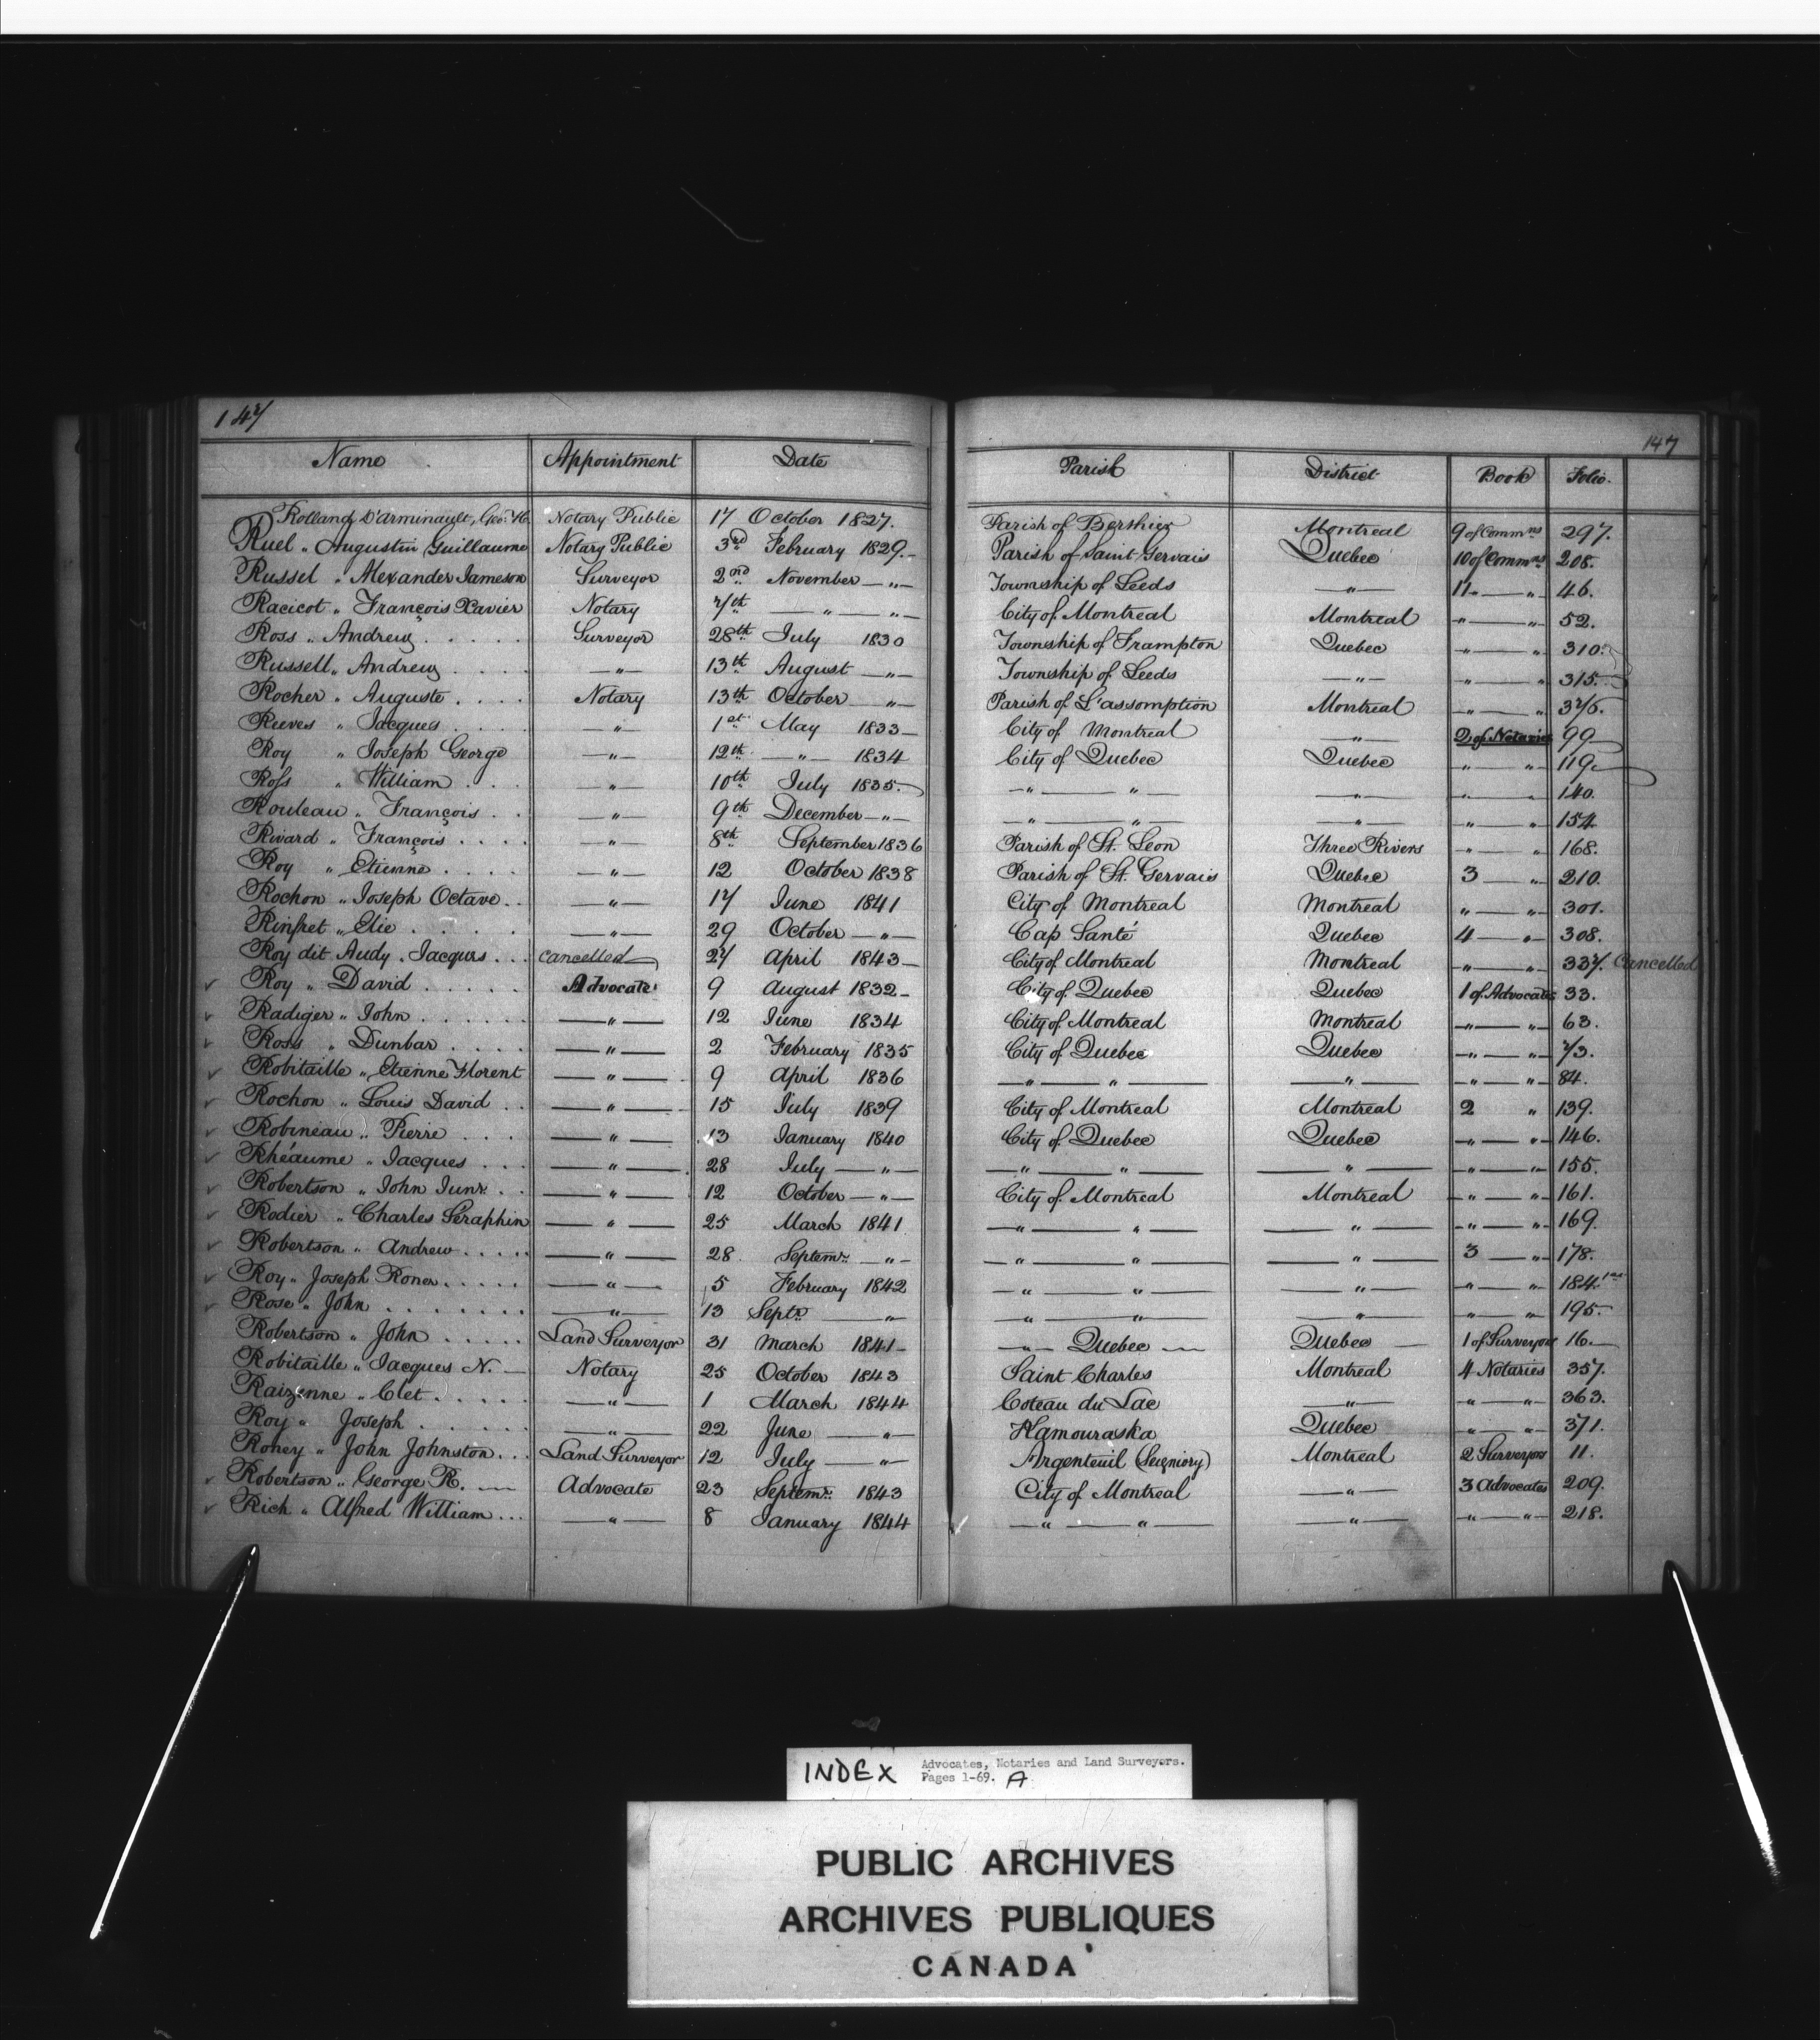 147
147
Name Appointment Date Parish District Book Folio.
Rolland D'arminault, Geo: H. Notary Public 17 October 1827. Parish of Berthier Montreal 9 of Commns 297.
Ruel „ Augustin Guillaume Notary Public 3rd February 1829.- Parish of Saint Gervais Quebec 10 of Commns 208.
Russel „ Alexander Jameson Surveyor 2nd November —„— Township of Leeds —„— 11 — „ — 46.
Racicot „ François Xavier Notary 7th — „ — „ — City of Montreal Montreal „ — „ 52.
Ross „ Andrew . . . . . Surveyor 28th July 1830 Township of Frampton Quebec „ — „ 310.
Russell „ Andrew . . . . —„— 13th August —„— Township of Leeds —„— „ — „ 315.
Rocher „ Auguste . . . . Notary 13th October —„— Parish of L'assomption Montreal „ — „ 375.
Reeves „ Jacques . . . . —„— 1st May 1833— City of Montreal —„— 2 of Notaries 99
Roy „ Joseph George —„— 12th —„— 1834 City of Quebec Quebec „ — „ 119.
Ross „ William . . . —„— 10th July 1835. —„— „ — —„— „ — „ 140.
Rouleau „ François . . —„— 9th December —„— —„— „ — —„— „ — „ 154
Rivard „ François . . . . —„— 8th September 1836 Parish of St. Leon Three Rivers „ — „ 168.
Roy „ Etienne . . . . —„— 12 October 1838 Parish of St. Gervais Quebec 3 — „ 210.
Rochon „ Joseph Octave . . —„— 17 June 1841 City of Montreal Montreal „ — „ 301.
Rinfret „ Elie . . . . . —„— 29 October —„— Cap Santé Quebec 4 — „ 308.
Roy dit Audy . Jacques . . . cancelled 27 April 1843— City of Montreal Montreal —„— „ 337. Cancelled
✓ Roy „ David . . . . . Advocate 9 August 1832- City of Quebec Quebec 1 of Advocates 33.
✓ Radiger „ John . . . . . . —„— 12 June 1834 City of Montreal Montreal —„— „ 63.
✓ Ross „ Dunbar . . . . —„— 2 February 1835 City of Quebec Quebec —„— „ 73.
✓ Robitaille „ Etienne Florent —„— 9 April 1836 —„— „ — —„— —„— „ 84.
✓ Rochon „ Louis David . . —„— 15 July 1839 City of Montreal Montreal 2 „ 139.
✓ Robineau „ Pierre . . . —„— 13 January 1840 City of Quebec Quebec —„— „ 146.
✓ Rhéaume „ Jacques . . . —„— 28 July —„— —„— „ — —„— —„— „ 155.
✓ Robertson „ John Junr. . . —„— 12 October —„— City of Montreal Montreal —„— „ 161.
✓ Rodier „ Charles Seraphin —„— 25 March 1841 —„— „ — —„— —„— „ 169.
✓ Robertson „ Andrew . . . . . —„— 28 Septemr. —„— —„— „ — —„— 3 — „ 178.
✓ Roy „ Joseph Roner . . . . . —„— 5 February 1842 —„— „ — —„— „ — „ 184.
✓ Rose „ John . . . . . . . . —„— 13 Septr. —„— —„— „ — —„— „ — „ 195.
Robertson „ John . . . . . Land Surveyor 31 March 1841- —„— Quebec — Quebec — 1 of Surveyors 16.
Robitaille „ Jacques N. — Notary 25 October 1843 Saint Charles Montreal 4 Notaries 357.
Raizenne „ Clet . . . . . —„— 1 March 1844 Coteau du Lac —„— „ — „ 363.
Roy „ Joseph . . . . . —„— 22 June —„— Kamouraska Quebec „ — „ 371.
Roney „ John Johnston . . . Land Surveyor 12 July —„— Argenteuil (Seigniory) Montreal 2 Surveyors 11.
✓ Robertson „ George R. — Advocate 23 Septemr. 1843 City of Montreal —„— 3 Advocates 209.
✓ Rich „ Alfred William . . . —„— 8 January 1844 —„— „ — —„— „ — „ 218.
INDEX Advocates, Notaries and Land Surveyors.
Pages 1-69. A
PUBLIC ARCHIVES
ARCHIVES PUBLIQUES
CANADA